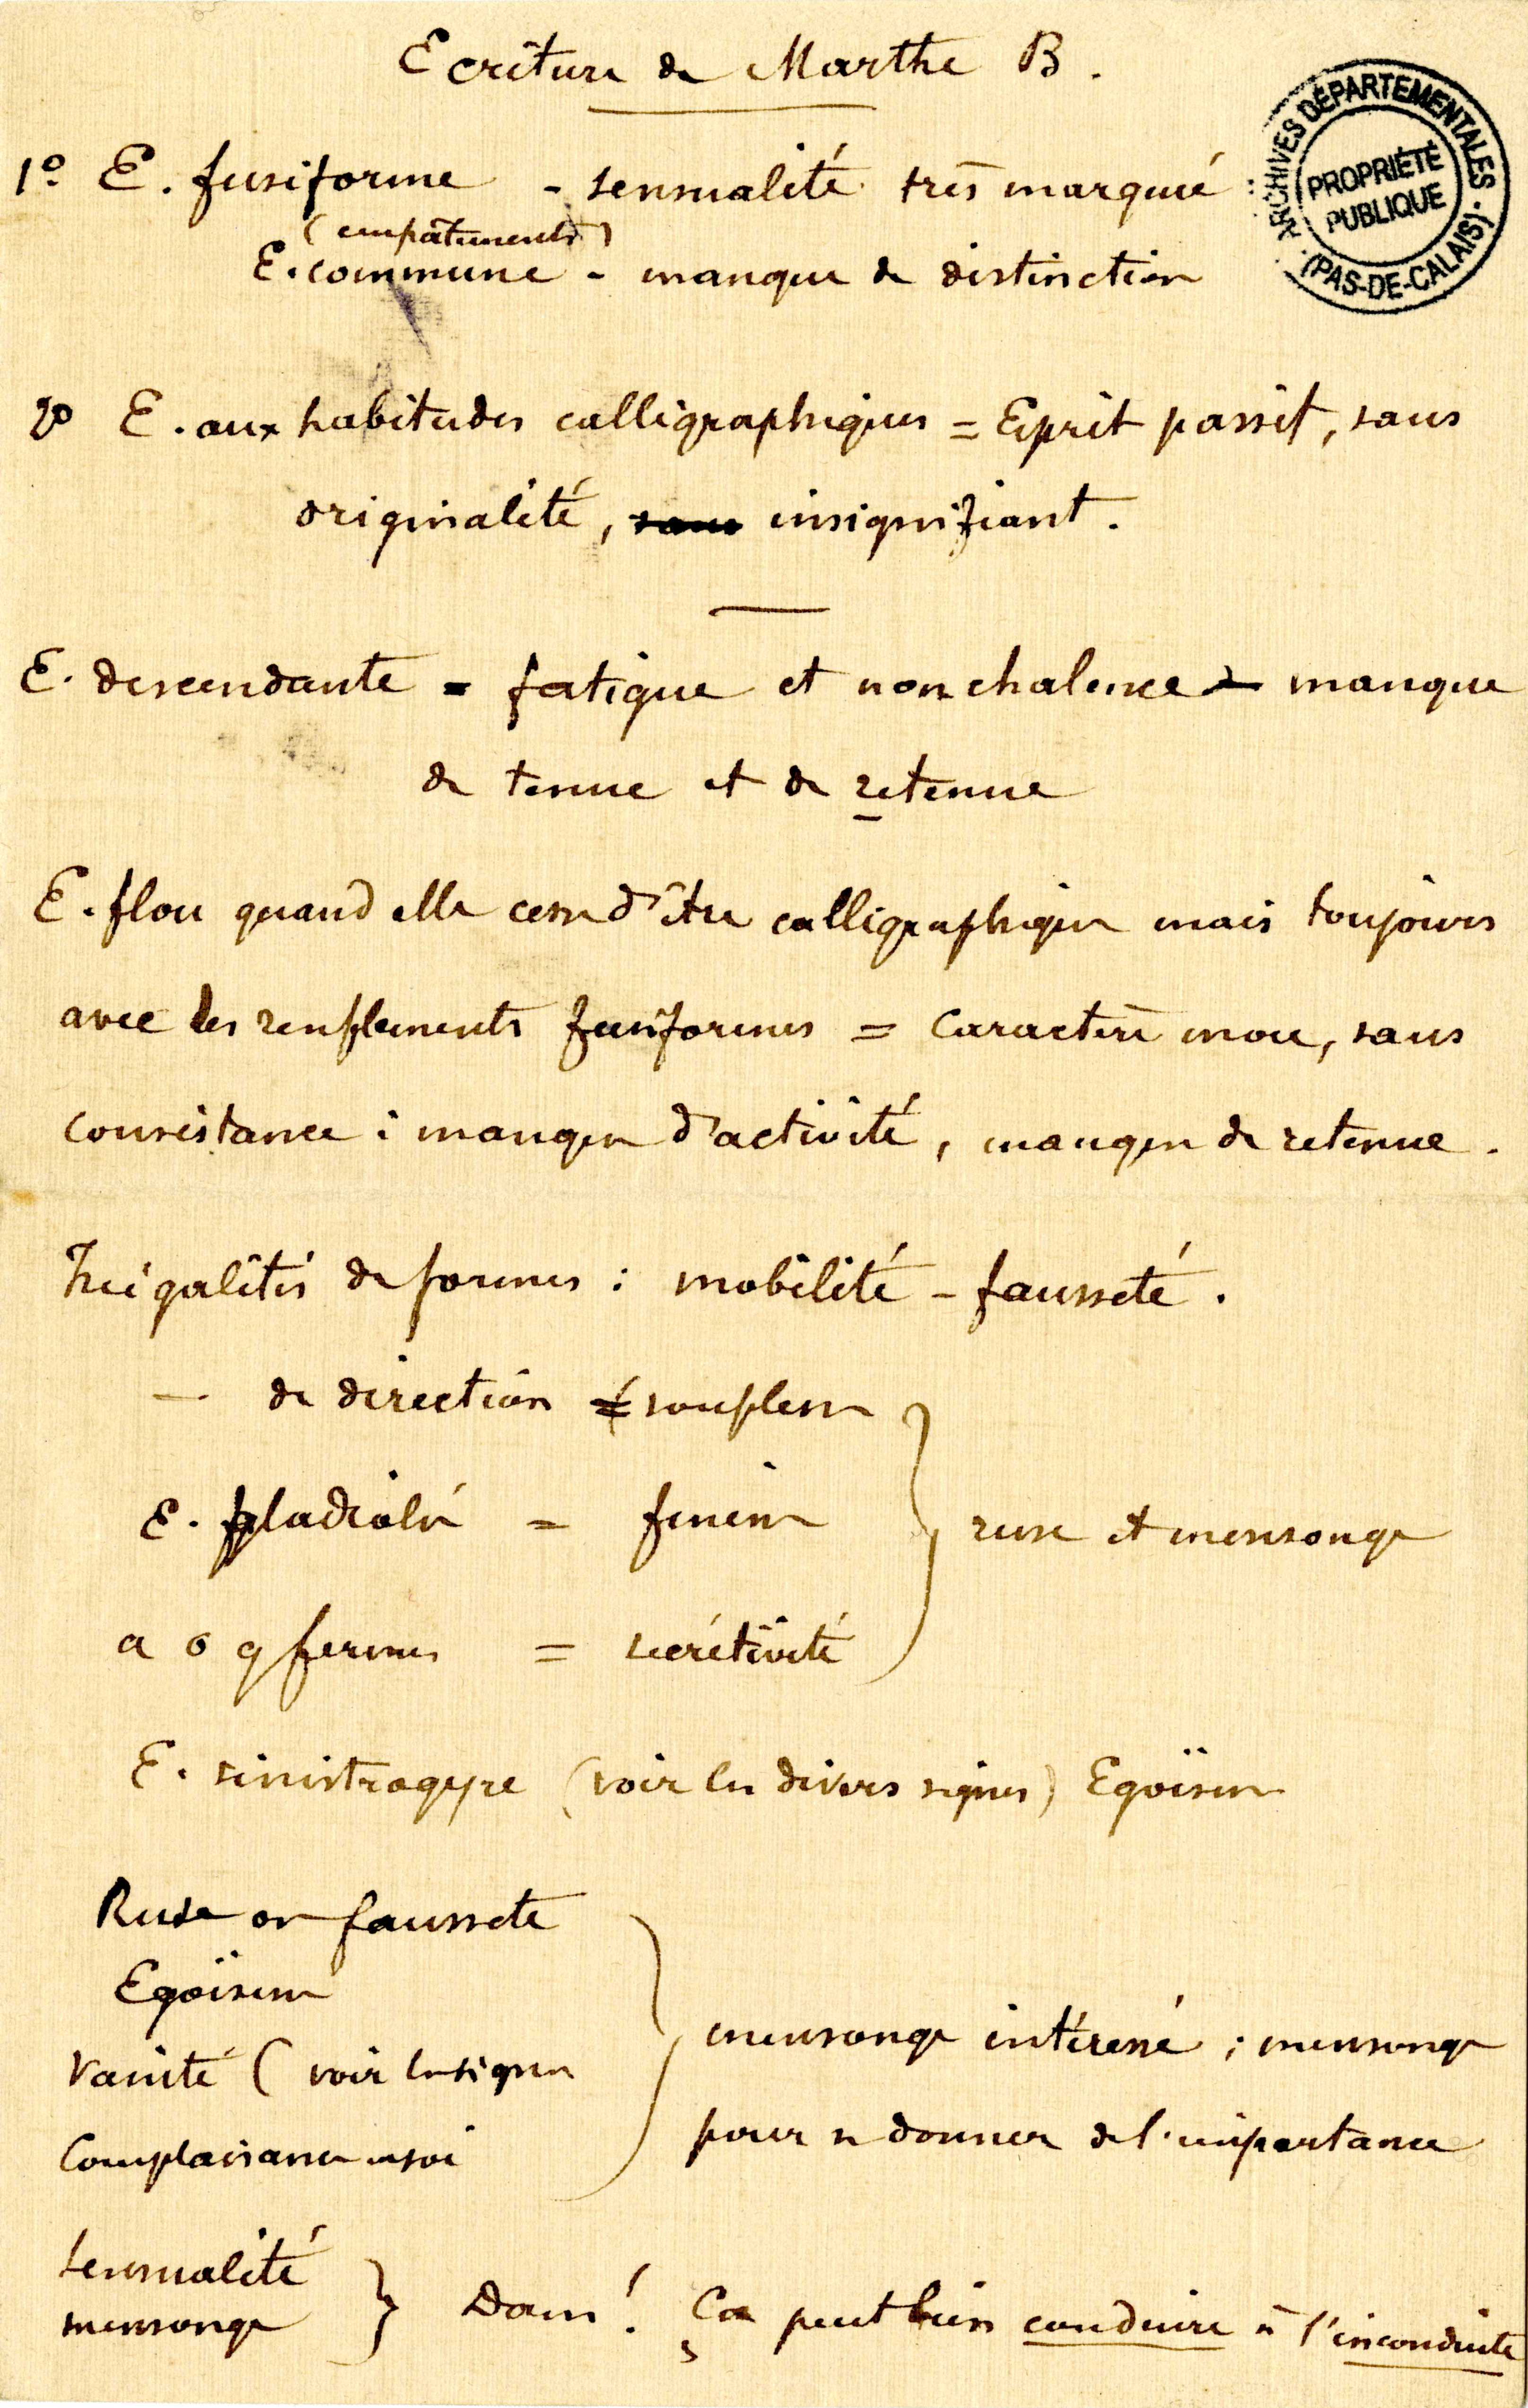 Ecriture de Marthe B.
ARCHIVES DÉPARTEMENTALES
PROPRIÉTÉ
PUBLIQUE
(PAS-DE-CALAIS)
1º E. fusiforme - sensualité très marquée
(empâtements)
E. commune - manque de distinction
2º E. aux habitudes calligraphiques = Esprit passif, sans
originalité, sans insignifiant.
E. descendante = fatigue et nonchalence = manque
de tenue et de retenue
E. floue quand elle cesse d'être calligraphique mais toujours
avec les renflements fusiformes = caractère mou, sans
consistance : manque d'activité, manque de retenue.
Inégalités de formes : mobilité - fausseté.
— de direction = souplesse
E. gladiolée = finesse
ruse et mensonge
a o g fermés = secrétivité
E. sinistrogyre (voir les divers signes) Egoïsme
Ruse ou fausseté
Egoïsme
Vanité (voir les signes
Complaisance en soi
mensonge intéressé ; mensonge
pour se donner de l'importance
Sensualité
mensonge
Dam ! Ça peut bien conduire à l'inconduite